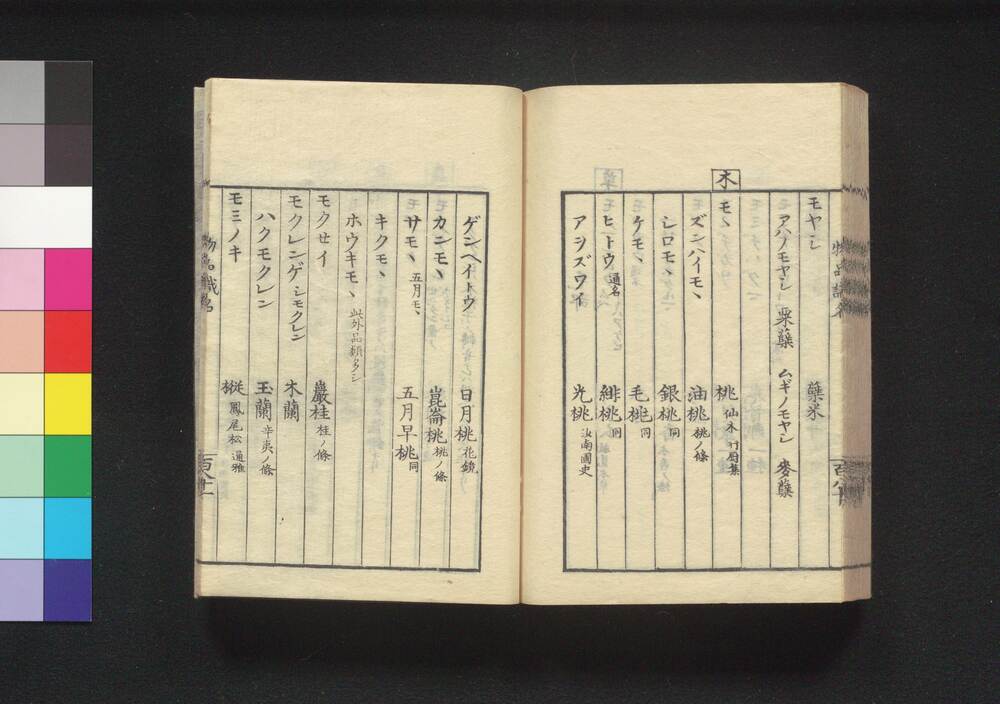 モヤシ 蘖米
アハノモヤシ 粟蘖 ムギノモヤシ 麥蘖
木
モヽ 桃 仙木 行厨集
ズンバイモヽ 油桃 桃ノ條
シロモヽ 銀桃 同
ケモヽ 毛桃 同
ヒトウ 通名 緋桃 同
アメズワイ 光桃 汝南圃史
ゲンペイトウ 日月桃 花鏡
カンモヽ 崑崙桃 桃ノ條
サモヽ 五月モヽ 五月早桃 同
キクモヽ
ホウキモヽ 此外品類多シ
モクセイ 巖桂 桂ノ條
モクレンゲ シモクレン 木蘭
ハクモクレン 玉蘭 辛夷ノ條
モミノキ 樅 鳳尾松 通雅
物品識名